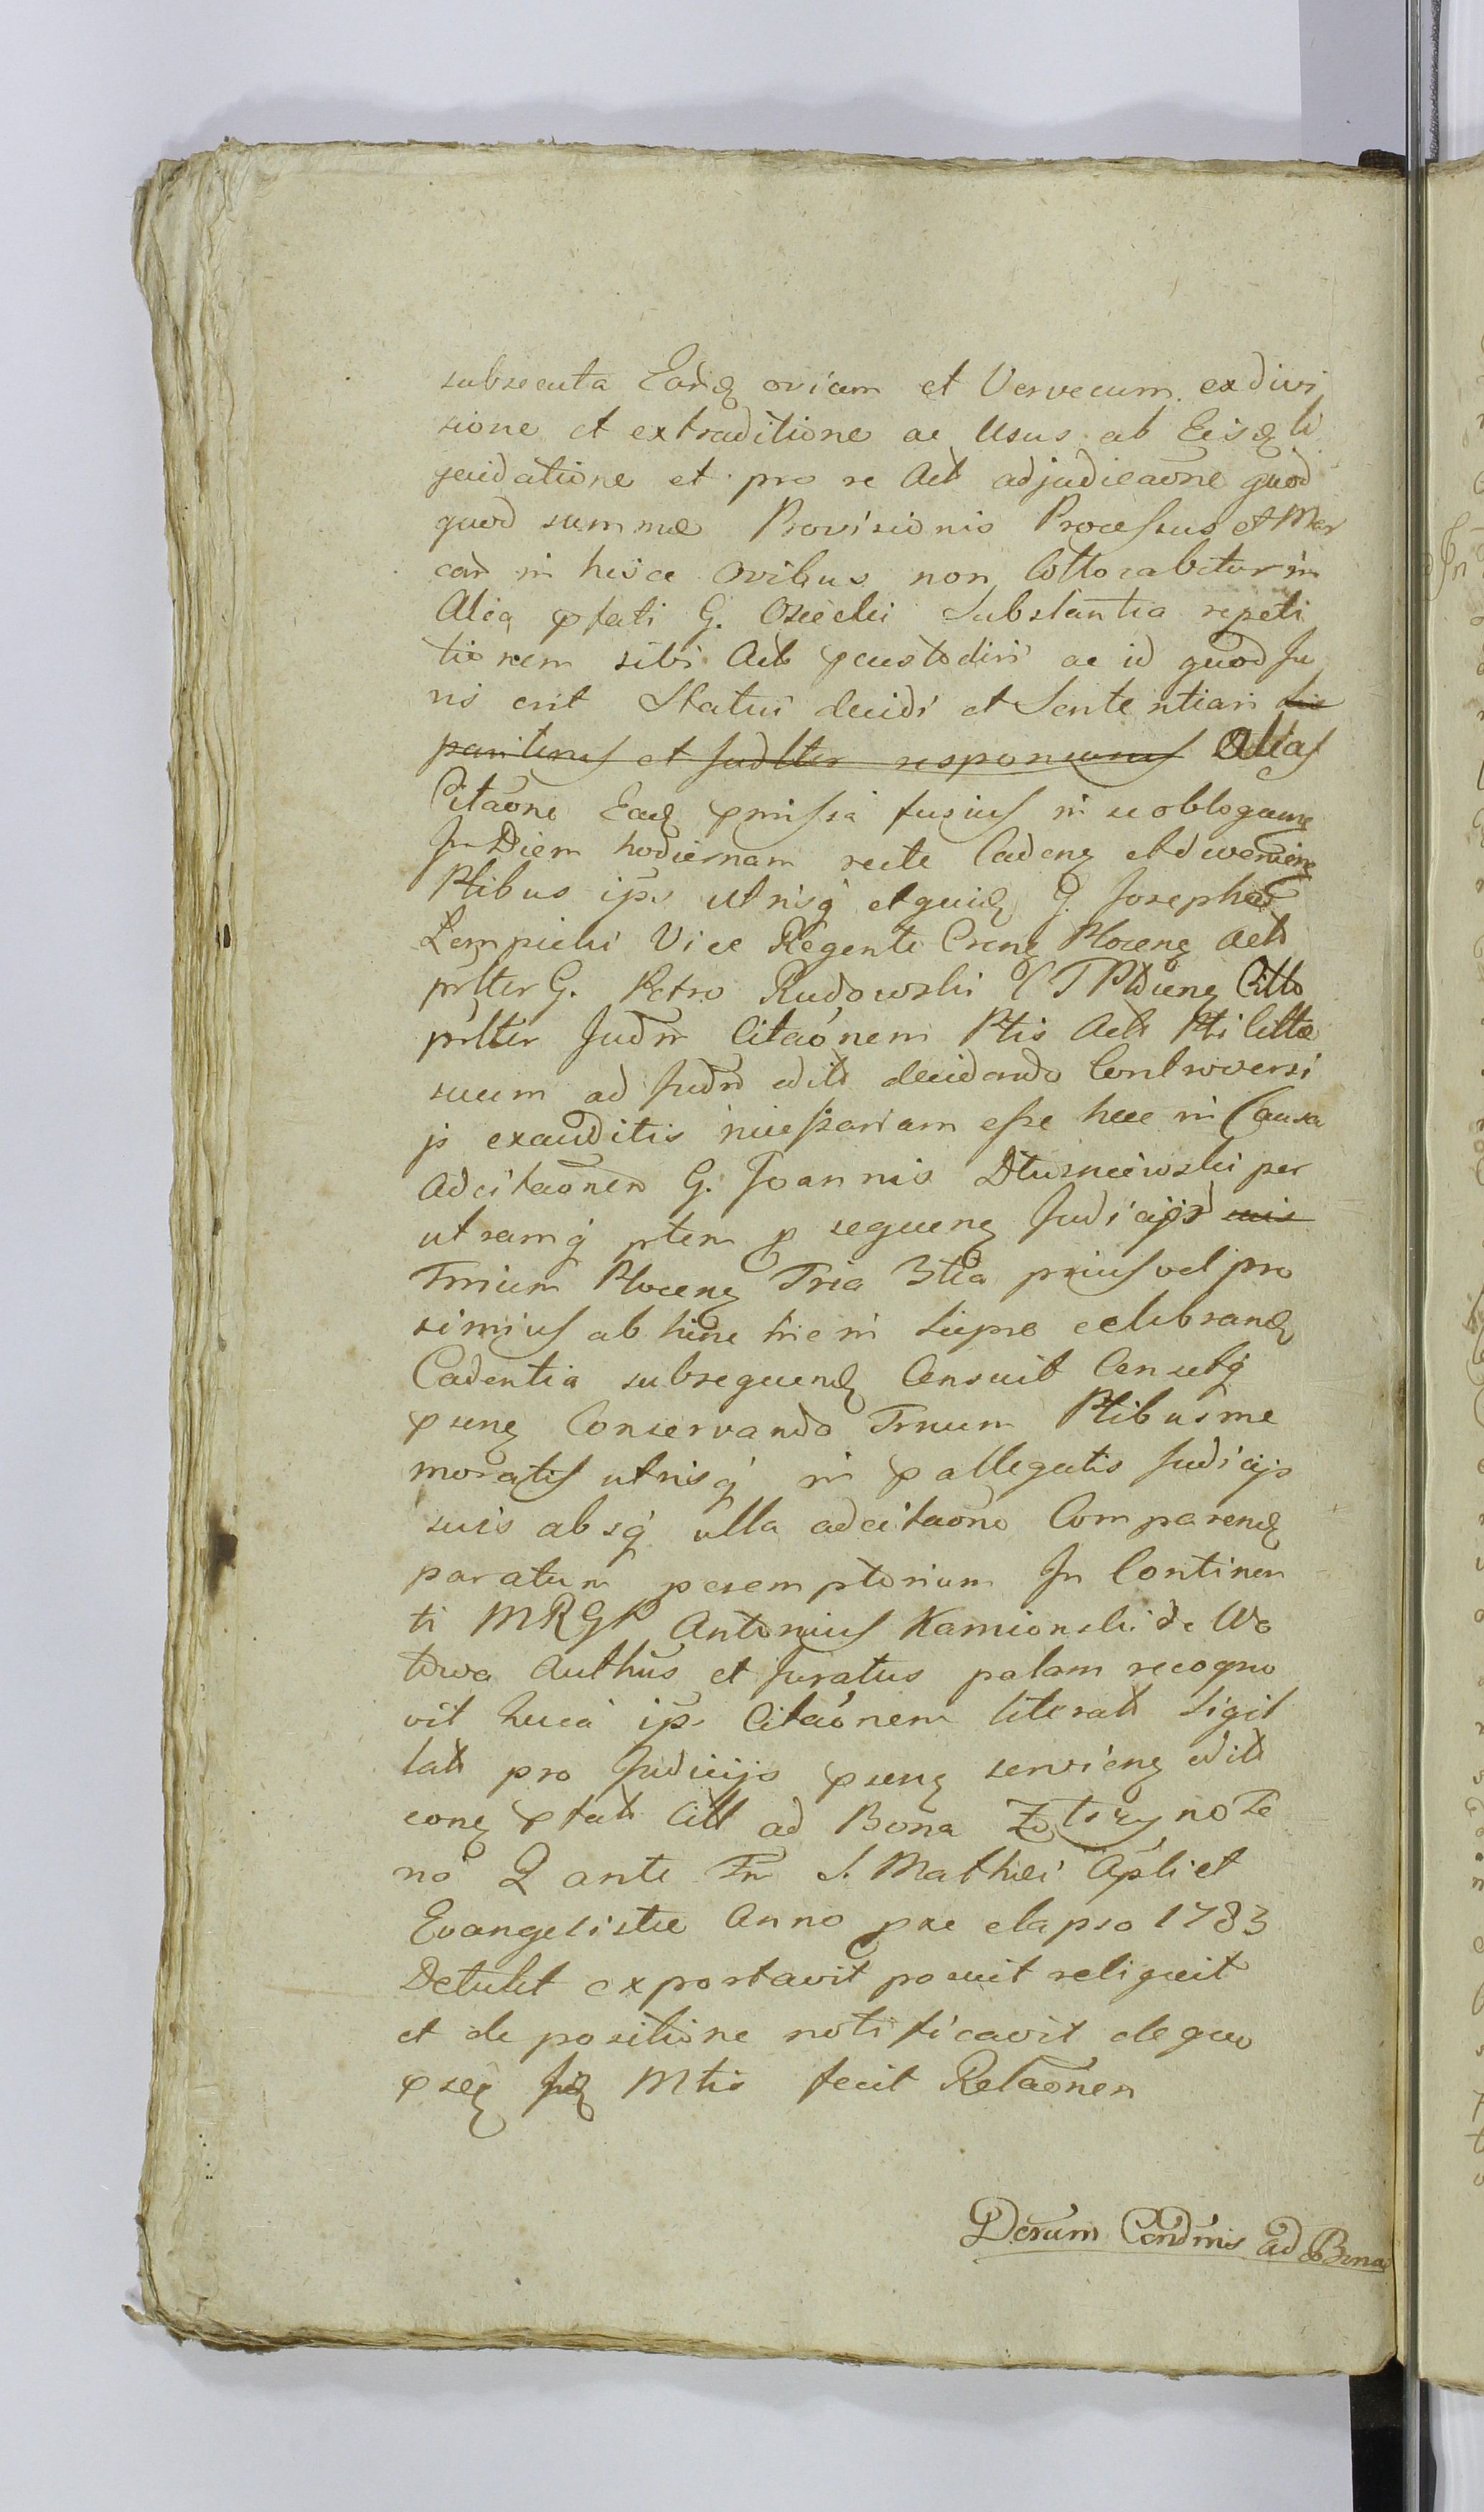 subsecuta Earq oviam et Vervecum exdivi
sione et extraditione ac Usus ab Eisq li
quidatione et pro re Act adjudicaone quod
quod summæ Provisionis Processus et Mar
car in hisce Ovibus non Collocabitur in
Alia pfati G. Osiecki Substantia repeti
tionem sibi Act pcustodiri ac id quod Ju
ris erit Statui decidi et Sententiari
pariturus et Judlter responsurus Alias
Citaone Eadq pmissa fusius in se oblogume
In Diem hodiernam recte Cadenq et
Ptibus ips utrisq etquidq G. Josepho
Lempicki Vice Regente Crenq Plocenq Act
prlter G. Petro Rudowski Citto
prlter Judm Citaonem Ptis Act Pti Cittæ
suum ad Judm edit decidendo Controversi
js exauditis necessariam esse hac in Causa
Adcitaonem G. Joannis Dłuzniewski per
utramq ptem p sequenq Judicijs suis
Trnium Plocenq Tria 3tia prius vel pro
ximius ab hinc hic in Sierpc celebranq
Cadentia subsequend Censuit Censetq
psenq Conservando Trnum Ptibus me
moratis utrisq in pallegatis Judicijs
suis absq ulla adcitaone Comparenq
paratum peremptorium In Continen
ti MRGP Antonius Kamionski de Wo
towa Authus et Juratus palam recogno
vit huica ips Citaonem literat Sigil
lat pro Judicijs psenq servienq edit
conq pfat Citt ad Bona
no Q ante Fm S. Mathæi Apli et
Evangelistæ Anno præ elapso 1783
Detulit exportavit posuit reliquit
et de positione notificavit de quo
pseq Mtis fecit Relaonem
Dorum Condnis ad Bona